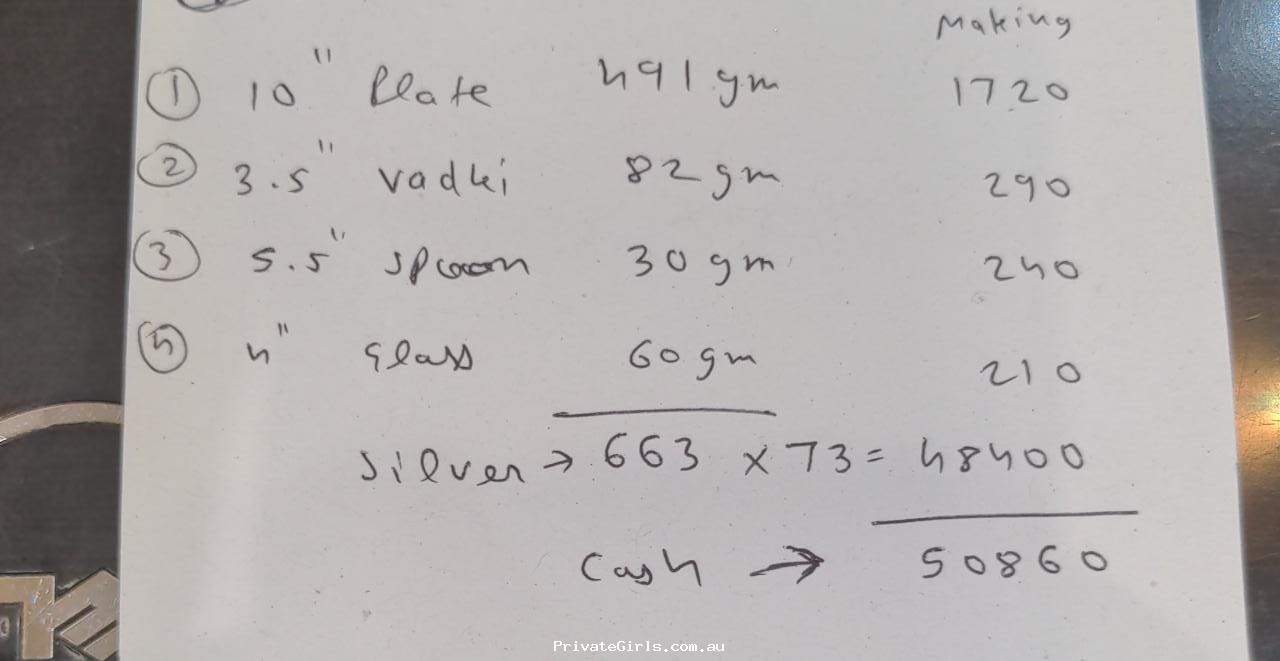 Making
① 10" Plate 491 gm 1720
② 3.5" vadki 82 gm 290
③ 5.5" spoon 30 gm 240
④ 4" Glass 60 gm 210
Silver → 663 x 73 = 48400
Cash → 50860
PrivateGirls.com.au